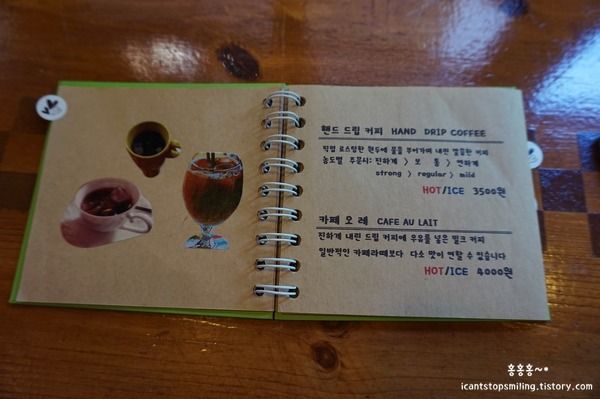 핸드 드립 커피 HAND DRIP COFFEE
직접 로스팅한 원두에 물을 부어가며 내린 깔끔한 커피
농도별 주문시: 진하게 > 보 통 > 연하게
strong > regular > mild
HOT/ICE 3500원
카페 오 레 CAFE AU LAIT
진하게 내린 드립 커피에 우유를 넣은 밀크 커피
일반적인 카페라떼보다 다소 맛이 연할 수 있습니다
HOT/ICE 4000원
홍홍홍~*
icantstopsmiling.tistory.com